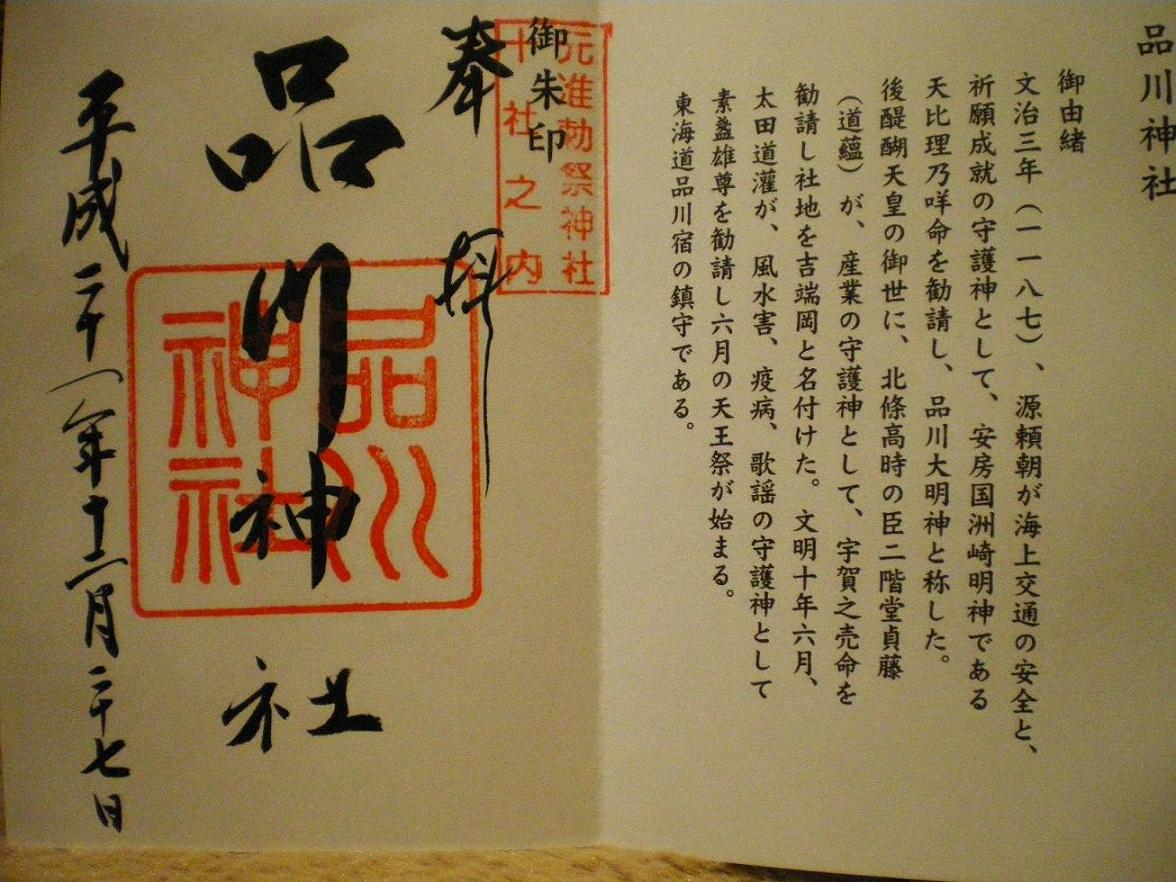 品川神社
御由緒
文治三年（一一八七）、源頼朝が海上交通の安全と、
祈願成就の守護神として、安房国洲崎明神である
天比理乃咩命を勧請し、品川大明神と称した。
後醍醐天皇の御世に、北條高時の臣二階堂貞藤
（道蘊）が、産業の守護神として、宇賀之売命を
勧請し社地を吉端岡と名付けた。文明十年六月、
太田道灌が、風水害、疫病、歌謡の守護神として
素盞雄尊を勧請し六月の天王祭が始まる。
東海道品川宿の鎮守である。
御朱印
元准勅祭神社
十社之内
奉拝
品川神社
品川
神社
平成二十一年十二月二十七日